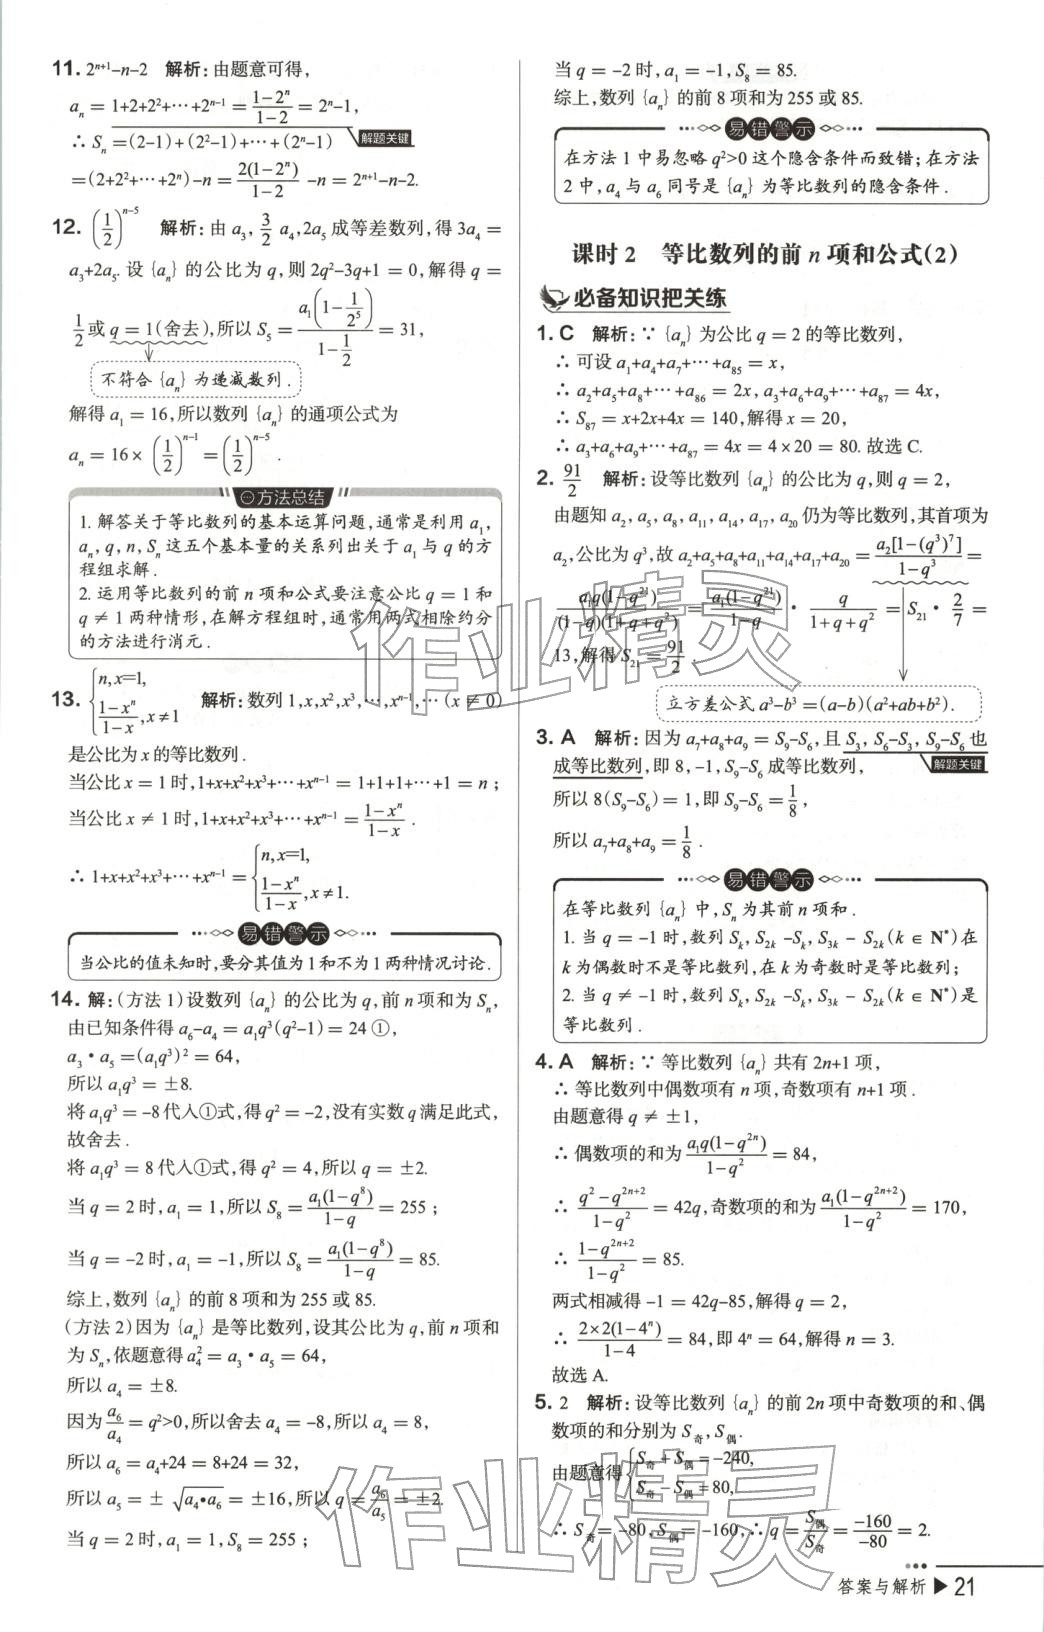 11. 2ⁿ⁺¹-n-2　解析:由题意可得,
aₙ = 1+2+2²+⋯+2ⁿ⁻¹ = (1-2ⁿ)/(1-2) = 2ⁿ-1,
∴ Sₙ =(2-1)+(2²-1)+⋯+(2ⁿ-1) 解题关键
=(2+2²+⋯+2ⁿ)-n = 2(1-2ⁿ)/(1-2) -n = 2ⁿ⁺¹-n-2.
12. (1/2)ⁿ⁻⁵　解析:由 a₃, 3/2 a₄,2a₅ 成等差数列,得 3a₄ =
a₃+2a₅. 设 {aₙ} 的公比为 q,则 2q²-3q+1 = 0,解得 q =
1/2 或 q = 1(舍去),所以 S₅ = a₁(1-1/2⁵)/(1-1/2) = 31,
不符合 {aₙ} 为递减数列.
解得 a₁ = 16,所以数列 {aₙ} 的通项公式为
aₙ = 16×(1/2)ⁿ⁻¹ = (1/2)ⁿ⁻⁵.
方法总结
1. 解答关于等比数列的基本运算问题,通常是利用 a₁,
aₙ,q,n,Sₙ 这五个基本量的关系列出关于 a₁ 与 q 的方
程组求解.
2. 运用等比数列的前 n 项和公式要注意公比 q = 1 和
q ≠ 1 两种情形,在解方程组时,通常用两式相除约分
的方法进行消元.
13. { n,x=1, (1-xⁿ)/(1-x),x≠1　解析:数列 1,x,x²,x³,⋯,xⁿ⁻¹,⋯(x ≠ 0)
是公比为 x 的等比数列.
当公比 x = 1 时,1+x+x²+x³+⋯+xⁿ⁻¹ = 1+1+1+⋯+1 = n;
当公比 x ≠ 1 时,1+x+x²+x³+⋯+xⁿ⁻¹ = (1-xⁿ)/(1-x).
∴ 1+x+x²+x³+⋯+xⁿ⁻¹ = { n,x=1, (1-xⁿ)/(1-x),x≠1.
易错警示
当公比的值未知时,要分其值为 1 和不为 1 两种情况讨论.
14. 解:(方法 1)设数列 {aₙ} 的公比为 q,前 n 项和为 Sₙ,
由已知条件得 a₆-a₄ = a₁q³(q²-1) = 24 ①,
a₃·a₅ =(a₁q³)² = 64,
所以 a₁q³ = ±8.
将 a₁q³ = -8 代入①式,得 q² = -2,没有实数 q 满足此式,
故舍去.
将 a₁q³ = 8 代入①式,得 q² = 4,所以 q = ±2.
当 q = 2 时,a₁ = 1,所以 S₈ = a₁(1-q⁸)/(1-q) = 255;
当 q = -2 时,a₁ = -1,所以 S₈ = a₁(1-q⁸)/(1-q) = 85.
综上,数列 {aₙ} 的前 8 项和为 255 或 85.
(方法 2)因为 {aₙ} 是等比数列,设其公比为 q,前 n 项和
为 Sₙ,依题意得 a₄² = a₃·a₅ = 64,
所以 a₄ = ±8.
因为 a₆/a₄ = q²>0,所以舍去 a₄ = -8,所以 a₄ = 8,
所以 a₆ = a₄+24 = 8+24 = 32,
所以 a₅ = ±√(a₄·a₆) = ±16,所以 q = a₆/a₅ = ±2.
当 q = 2 时,a₁ = 1,S₈ = 255;
当 q = -2 时,a₁ = -1,S₈ = 85.
综上,数列 {aₙ} 的前 8 项和为 255 或 85.
易错警示
在方法 1 中易忽略 q²>0 这个隐含条件而致错;在方法
2 中,a₄ 与 a₆ 同号是 {aₙ} 为等比数列的隐含条件.
课时 2　等比数列的前 n 项和公式(2)
必备知识把关练
1. C　解析:∵ {aₙ} 为公比 q = 2 的等比数列,
∴ 可设 a₁+a₄+a₇+⋯+a₈₅ = x,
∴ a₂+a₅+a₈+⋯+a₈₆ = 2x,a₃+a₆+a₉+⋯+a₈₇ = 4x,
∴ S₈₇ = x+2x+4x = 140,解得 x = 20,
∴ a₃+a₆+a₉+⋯+a₈₇ = 4x = 4×20 = 80. 故选 C.
2. 91/2　解析:设等比数列 {aₙ} 的公比为 q,则 q = 2,
由题知 a₂,a₅,a₈,a₁₁,a₁₄,a₁₇,a₂₀ 仍为等比数列,其首项为
a₂,公比为 q³,故 a₂+a₅+a₈+a₁₁+a₁₄+a₁₇+a₂₀ = a₂[1-(q³)⁷]/(1-q³) =
a₁q(1-q²¹)/((1-q)(1+q+q²)) = a₁(1-q²¹)/(1-q) · q/(1+q+q²) = S₂₁ · 2/7 =
13,解得 S₂₁ = 91/2.
立方差公式 a³-b³ =(a-b)(a²+ab+b²).
3. A　解析:因为 a₇+a₈+a₉ = S₉-S₆,且 S₃,S₆-S₃,S₉-S₆ 也
成等比数列,即 8,-1,S₉-S₆ 成等比数列, 解题关键
所以 8(S₉-S₆) = 1,即 S₉-S₆ = 1/8,
所以 a₇+a₈+a₉ = 1/8.
易错警示
在等比数列 {aₙ} 中,Sₙ 为其前 n 项和.
1. 当 q = -1 时,数列 Sₖ,S₂ₖ-Sₖ,S₃ₖ-S₂ₖ(k ∈ N*)在
k 为偶数时不是等比数列,在 k 为奇数时是等比数列;
2. 当 q ≠ -1 时,数列 Sₖ,S₂ₖ-Sₖ,S₃ₖ-S₂ₖ(k ∈ N*)是
等比数列.
4. A　解析:∵ 等比数列 {aₙ} 共有 2n+1 项,
∴ 等比数列中偶数项有 n 项,奇数项有 n+1 项.
由题意得 q ≠ ±1,
∴ 偶数项的和为 a₁q(1-q²ⁿ)/(1-q²) = 84,
∴ (q²-q²ⁿ⁺²)/(1-q²) = 42q,奇数项的和为 a₁(1-q²ⁿ⁺²)/(1-q²) = 170,
∴ (1-q²ⁿ⁺²)/(1-q²) = 85.
两式相减得 -1 = 42q-85,解得 q = 2,
∴ 2×2(1-4ⁿ)/(1-4) = 84,即 4ⁿ = 64,解得 n = 3.
故选 A.
5. 2　解析:设等比数列 {aₙ} 的前 2n 项中奇数项的和、偶
数项的和分别为 S奇,S偶.
由题意得 { S奇+S偶 = -240, S奇-S偶 = 80,
∴ S奇 = -80,S偶 = -160,∴ q = S偶/S奇 = -160/-80 = 2.
答案与解析 ▶ 21
作业精灵
作业精灵